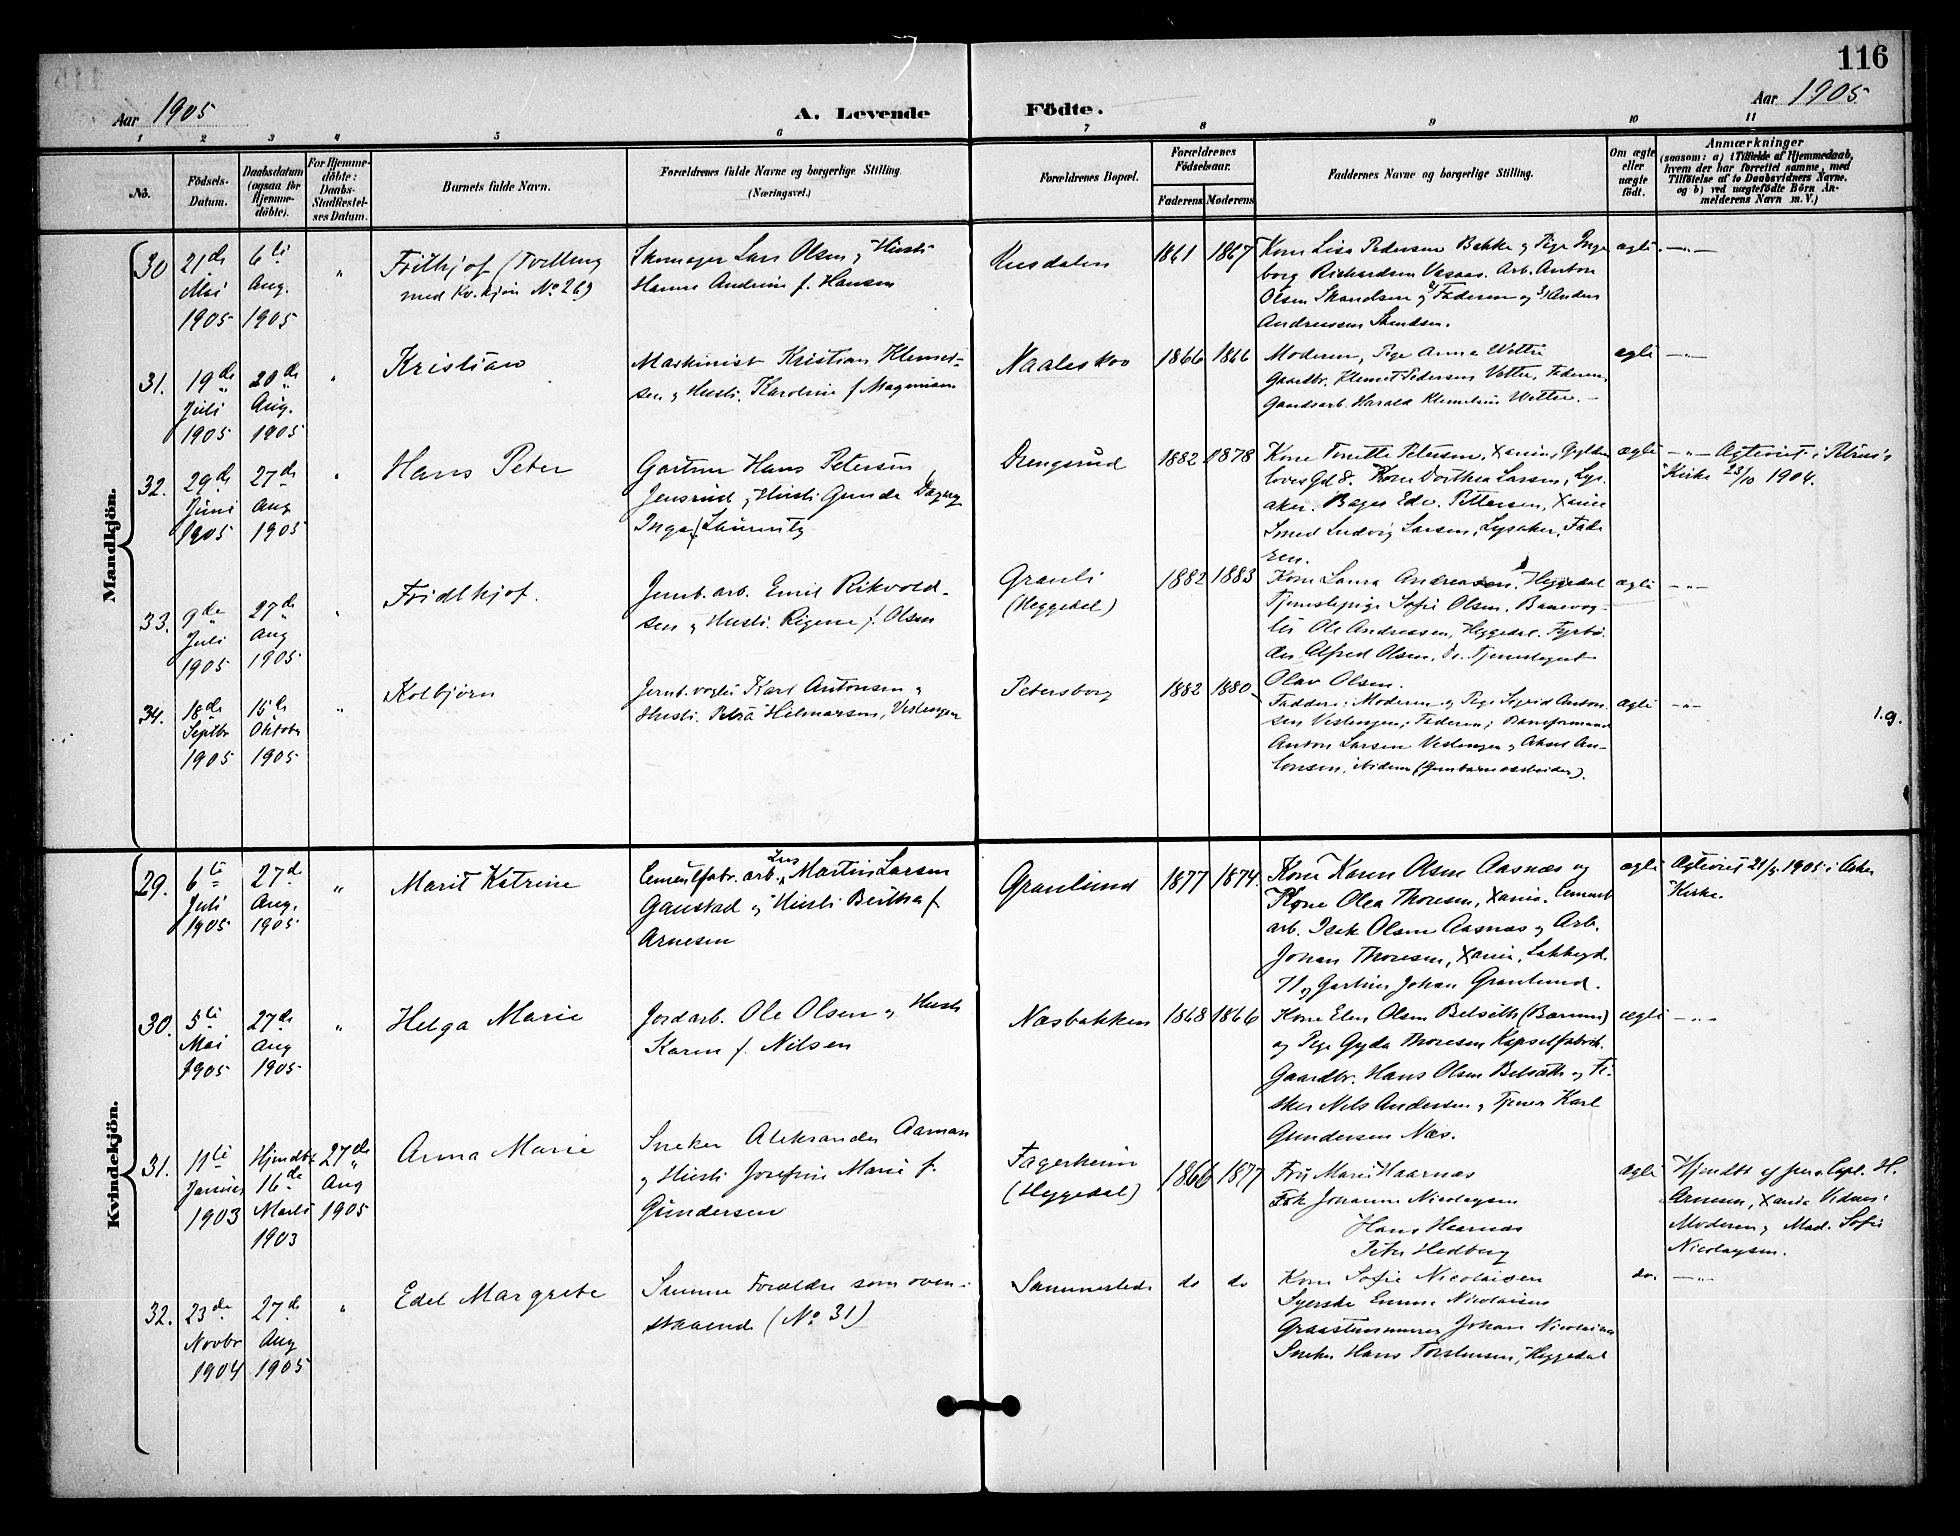 116
Aar 1905
A. Levende Födte.
Aar 1905
1 2 3 4 5 6 7 8 9 10 11
Nô.
Födsels-Datum.
Daabsdatum (ogsaa for Hjemmedöbte).
For Hjemmedöbte: Daabs-Stadfæstelses Datum.
Barnets fulde Navn.
Forældrenes fulde Navne og borgerlige Stilling. (Næringsvei.)
Forældrenes Bopæl.
Forældrenes Födselsaar.
Faderens Moderens
Faddernes Navne og borgerlige Stilling.
Om ægte eller uægte födt.
Anmærkninger
(saasom: a) i Tilfælde af Hjemmedaab,
hvem der har forrettet samme, med
Tilföielse af to Daabsvidners Navne,
og b) ved uægtefödte Börn An-
melderens Navn m. V.)
Mandkjön.
30 21de Mai 1905
6te Aug. 1905
"
Frithjof (Tvilling
med Kv.kjön No 26)
Skomager Lars Olsen og Hustr.
Hanne Andrine f. Hansen
1861 1867
Kone Lisa Pedersen Bakke og Pige Inge
borg Richardsen Vasaas. Arb. Anton
Olsen Skandsen og Faderen og Anders
Andreassen
ægte
— " —
31. 19de Juli 1905
20de Aug. 1905
"
Kristian
Maskinist Kristian Klemet-
sen og Hustr. Karoline f. Magnussen
1866 1866
Moderen, Pige Anna Vettre
Gaardbr. Klemet Pedersen Vettre, Faderen,
Gaardsarb. Harald Klemetsen Vettre. —
ægte
— " —
32. 29de Juni 1905
27de Aug 1905
"
Hans Peter
Gartner Hans Petersen
Jensrud og Hustr. Gunda Dagny
Inga f. Laurentz
Drengsrud
1882 1878
Kone Petersen, Xania, Gylden
lövesgd 8. Kone Dorthea Larsen, Lys-
aker. Bager Edv. Pettersen, Xania
Smed Ludvig Larsen, Lysaker, Fade-
ren.
ægte
— " — Ægteviet i Petrus's
Kirke 23/10 1904.
33. 9de Juli 1905
27de Aug 1905
"
Fridthjof.
Jernb. arb. Emil Rikvold-
sen og Hustr. Rigene f. Olsen
Granli
(Heggedal)
1882 1883
Kone Laura Andreassen, Heggedal
Tjenestepige Sofie Olsen. Banevog-
ter Ole Andreassen, Heggedal. Fyrbö-
der Alfred Olsen, Do. Tjenestegut
Olav Olsen.
ægte
— " —
34. 18de Septbr 1905
15de Oktobr 1905
"
Kolbjörn
Jernb. vogter Karl Antonsen og
Hustr. Petra Hilmarsen, Vestengen
Petersborg
1882 1880
Faddere: Moderen og Pige Sigrid Anton-
sen Vestengen; Faderen; Baneformand
Anton Larsen Vestengen og Aksel An-
tonsen, ibidem (Jernbanearbeider).
ægte
— " —
1.9.
Kvindekjön.
29. 6te Juli 1905
27de Aug. 1905
"
Marit Katrine
Cementfabr. arb. Lars Martin Larsen
Gaustad og Hustr. Bertha f.
Arnesen
Granlund
1877 1874.
Kone Karen Olsen Aasnæs og
Kone Olea Thoresen, Xania. Cement
arb. Isak Olsen Aasnæs og Arb.
Johan Thoresen, Xania, Lakkegd.
71 og Gartner Johan Granlund.
ægte
Ægteviet 21/5 1905 i Asker
Kirke.
30. 5te Mai 1905
27de Aug 1905
"
Helga Marie
Jordarb. Ole Olsen og Hustr.
Karen f. Nilsen
Næsbakken
1868 1866
Kone Elen Olsen Belset (Bærum)
og Pige Gyda Thoresen Kapselfabrik.
Gaardbr. Hans Olsen Belset og Fi-
sker Nils Andersen og Tjener Karl
Gundersen Næs.
ægte
— " —
31. 11te Januar 1903
Hjemdbt 16de Marts 1903
27de Aug 1905
Anna Marie
Sneker Aleksander Aaman
og Hustr. Josefine Marie f.
Gundersen
Fagerheim
(Heggedal)
1866 1877
Fru Marie Haarnas
Frk Johanne Nicolaysen
Hans Haarnas
Peter Hedberg
ægte
Hjemdbt af Capt. H.
Arnesen, Xania Vidner:
Moderen og Mad. Sofie
Nicolaysen.
32. 23de Novbr 1904
27de Aug 1905
"
Edel Margrete
Samme Forældre som oven-
staaende (No 31)
Sammesteds
do do
Kone Sofie Nicolaisen
Syerske Emma Nicolaisen
Johan Nicolaisen
Sneker Hans Torstensen, Heggedal
do.
— " —